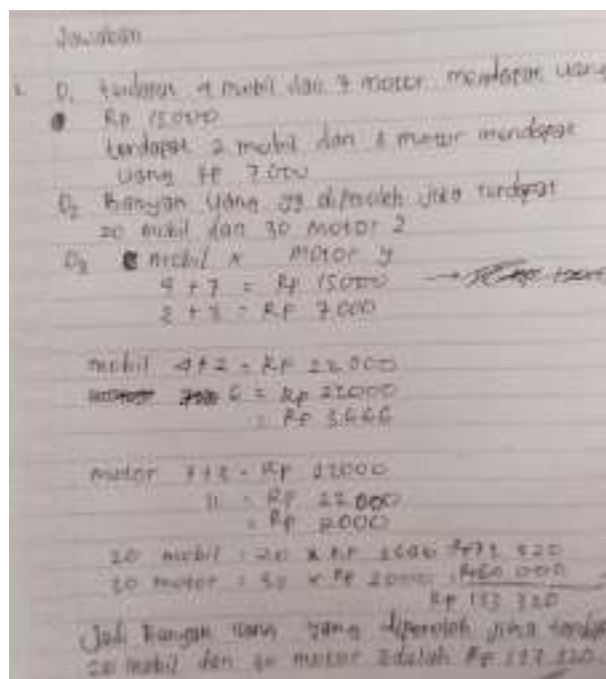 Jawaban
D1 terdapat 4 mobil dan 7 motor mendapat uang
Rp 15000
terdapat 2 mobil dan motor mendapat
uang Rp 7000
D2 Banyan uang yg diperoleh jika terdapat
20 mobil dan 30 motor ?
D3 mobil x motor y
4 + 7 = Rp 15000 →
= Rp 7.000
mobil 4+2 = Rp 22.000
6 = Rp 22000
= Rp 3.666
motor = Rp 22000
11 = Rp 22.000
= Rp 2000
20 mobil = 20 x Rp 3666 Rp 73 320
30 motor = 30 x Rp 2000 Rp 60 000
Rp 133 320
Jadi uang yang diperoleh jika
20 mobil dan 30 motor adalah Rp 133 320